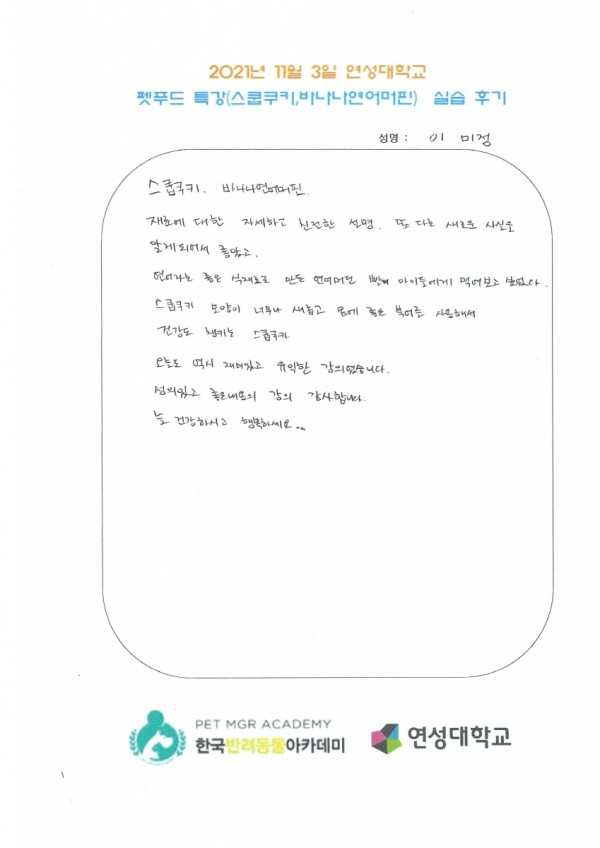 2021년 11월 3일 연성대학교
펫푸드 특강(스쿱쿠키,바나나연어머핀) 실습 후기
성명 : 이 미정
스쿱쿠키. 바나나연어머핀.
재료에 대한 자세하고 친절한 설명. 또 다른 새로운 사실을
알게되어서 좋았고.
연어라는 좋은 식재료로 만든 연어머핀 빨리 아이들에게 먹여보고 싶었다.
스쿱쿠키 모양이 너무나 새롭고 몸에 좋은 북어를 사용해서
건강도 챙기는 스쿱쿠키
오늘도 역시 재미있고 유익한 강의였습니다.
성의있고 좋은내용의 강의 감사합니다.
늘 건강하시고 행복하세요..
PET MGR ACADEMY
한국반려동물아카데미
연성대학교